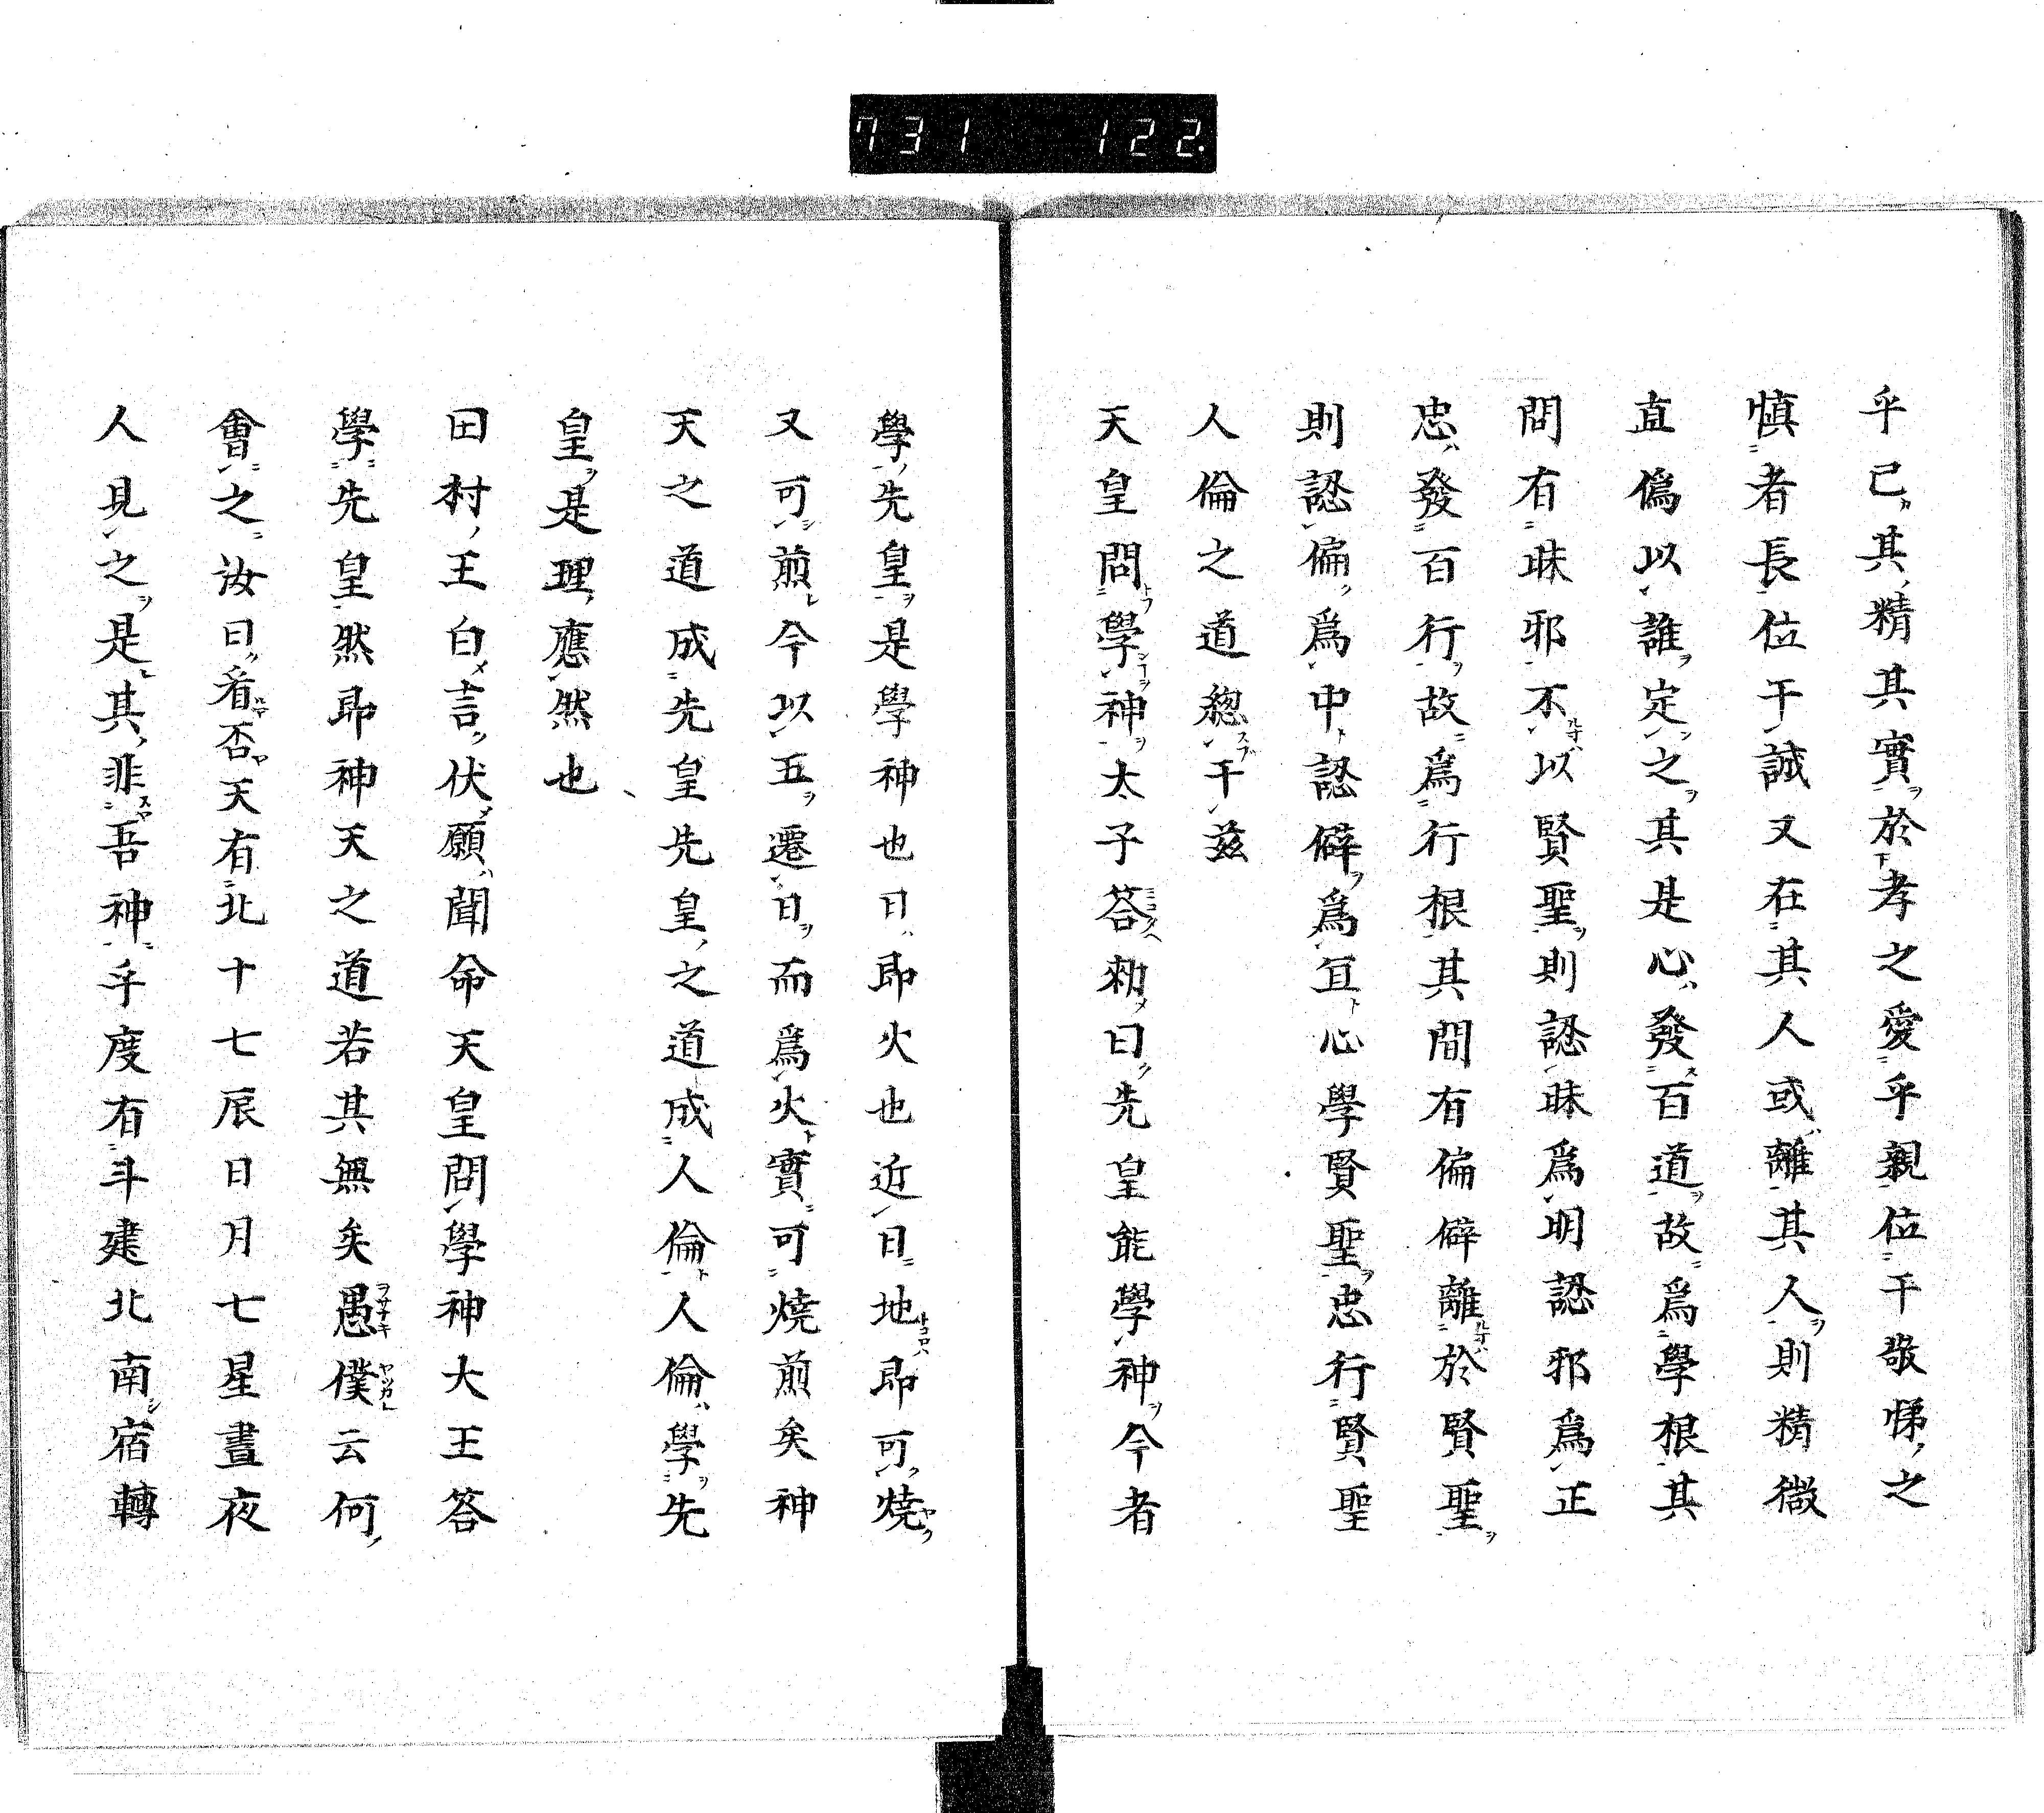 731 122.
乎己其精其實於孝之愛乎親位干敬悌之
慎者長位干誠又在其人或離其人則精微
直偽以誰定之其是心發百道故爲學根其
問有昧邪不以賢聖則認昧爲明認邪爲正
忠發百行故爲行根其間有偏僻離於賢聖
則認偏爲中認僻爲宜心學賢聖忠行賢聖
人倫之道總干茲
天皇問學神太子答勅曰先皇能學神今者
學先皇是學神也日即火也近日地即可燒
又可煎今以五遷日而爲火實可燒煎矣神
天之道成先皇先皇之道成人倫人倫學先
皇是理應然也
田村王白言伏願聞命天皇問學神大王答
學先皇然即神天之道若其無矣愚僕云何
會之汝曰看否天有北十七辰日月七星晝夜
人見之是其非吾神乎度有斗建北南宿轉